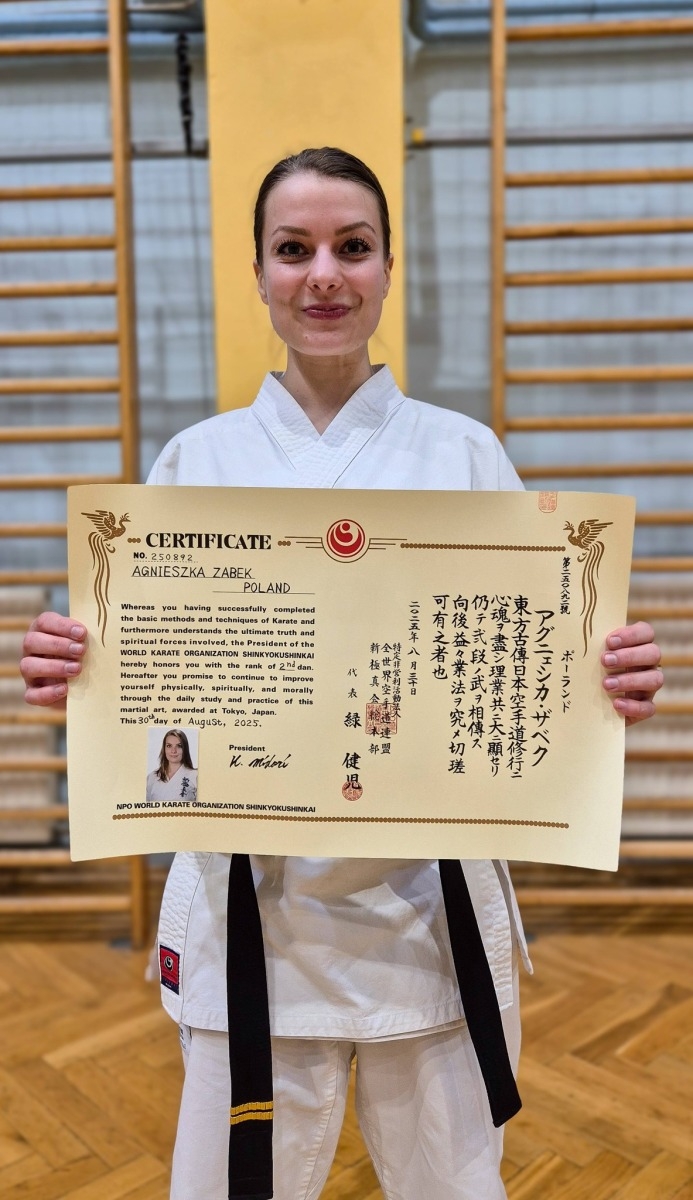 CERTIFICATE
NO. 250892
AGNIESZKA ZABEK
POLAND
Whereas you having successfully completed
the basic methods and techniques of Karate and
furthermore understands the ultimate truth and
spiritual forces involved, the President of the
WORLD KARATE ORGANIZATION SHINKYOKUSHINKAI
hereby honors you with the rank of 2nd dan.
Hereafter you promise to continue to improve
yourself physically, spiritually, and morally
through the daily study and practice of this
martial art, awarded at Tokyo, Japan.
This 30th day of August, 2025.
President
K. Midori
NPO WORLD KARATE ORGANIZATION SHINKYOKUSHINKAI
第二五〇八九二號
ポーランド
アグニェシカ・ザベク
東方古傳日本空手道修行ニ
心魂ヲ盡シ理業共ニ大ニ顯セリ
仍テ弐段ノ武ヲ相傳ス
向後益々業法ヲ究メ切瑳
可有之者也
二〇二五年八月三十日
特定非営利活動法人
全世界空手道連盟
新極真会総本部
代表 緑健児